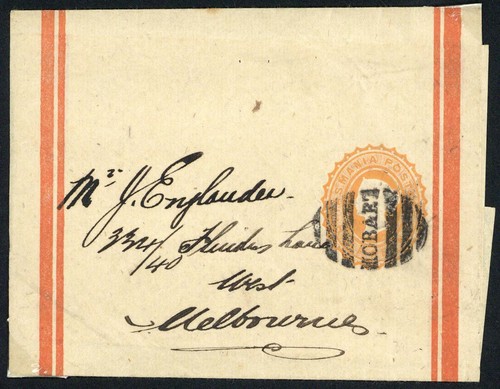 Mr J. Englander.
334/40 Flinders Lane
West
Melbourne
SMANIA POST
HOBART